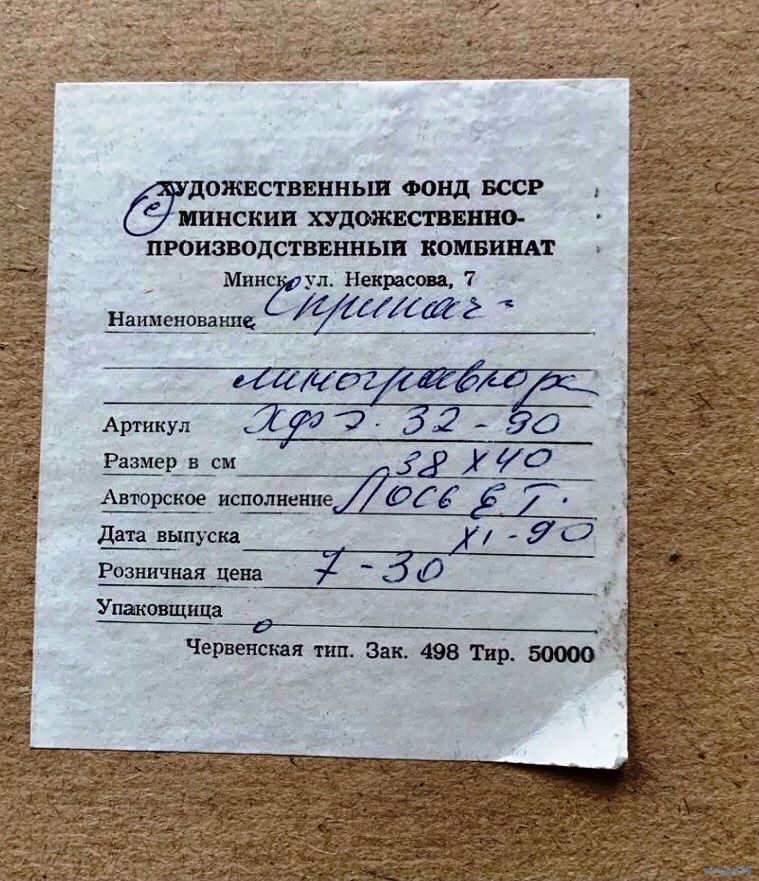 ХУДОЖЕСТВЕННЫЙ ФОНД БССР
с МИНСКИЙ ХУДОЖЕСТВЕННО-
ПРОИЗВОДСТВЕННЫЙ КОМБИНАТ
Минск, ул. Некрасова, 7
Наименование
линогравюра
Артикул ХФЭ. 32-90
Размер в см 38 х 40
Авторское исполнение Лось Е.Г.
Дата выпуска XI-90
Розничная цена 7-30
Упаковщица
Червенская тип. Зак. 498 Тир. 50000